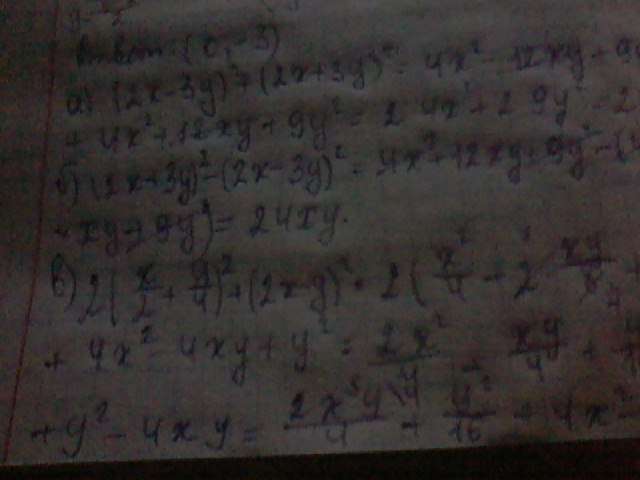 Ответ: (0; -3)
а) (2x-3y)²+(2x+3y)² = 4x² - 12xy + 9y
+ 4x²+12xy+9y² = 2 4x²+2 9y² = 2
б) (2x+3y)²-(2x-3y)² = 4x²+12xy+9y² - (4
- xy+9y²) = 24xy.
в) 2(x/2 + y/4)²+(2x-y)² = 2(x²/4 + 2
+ 4x² - 4xy + y² = 2x²/4 xy/4 +
+ y² - 4xy = y²/16 + 4x²